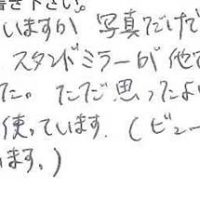 書き下さい。
いますが 写真だけで
スタンドミラーが 他で
た。 ただ思ったよ
使っています。(ビュー
ます。)